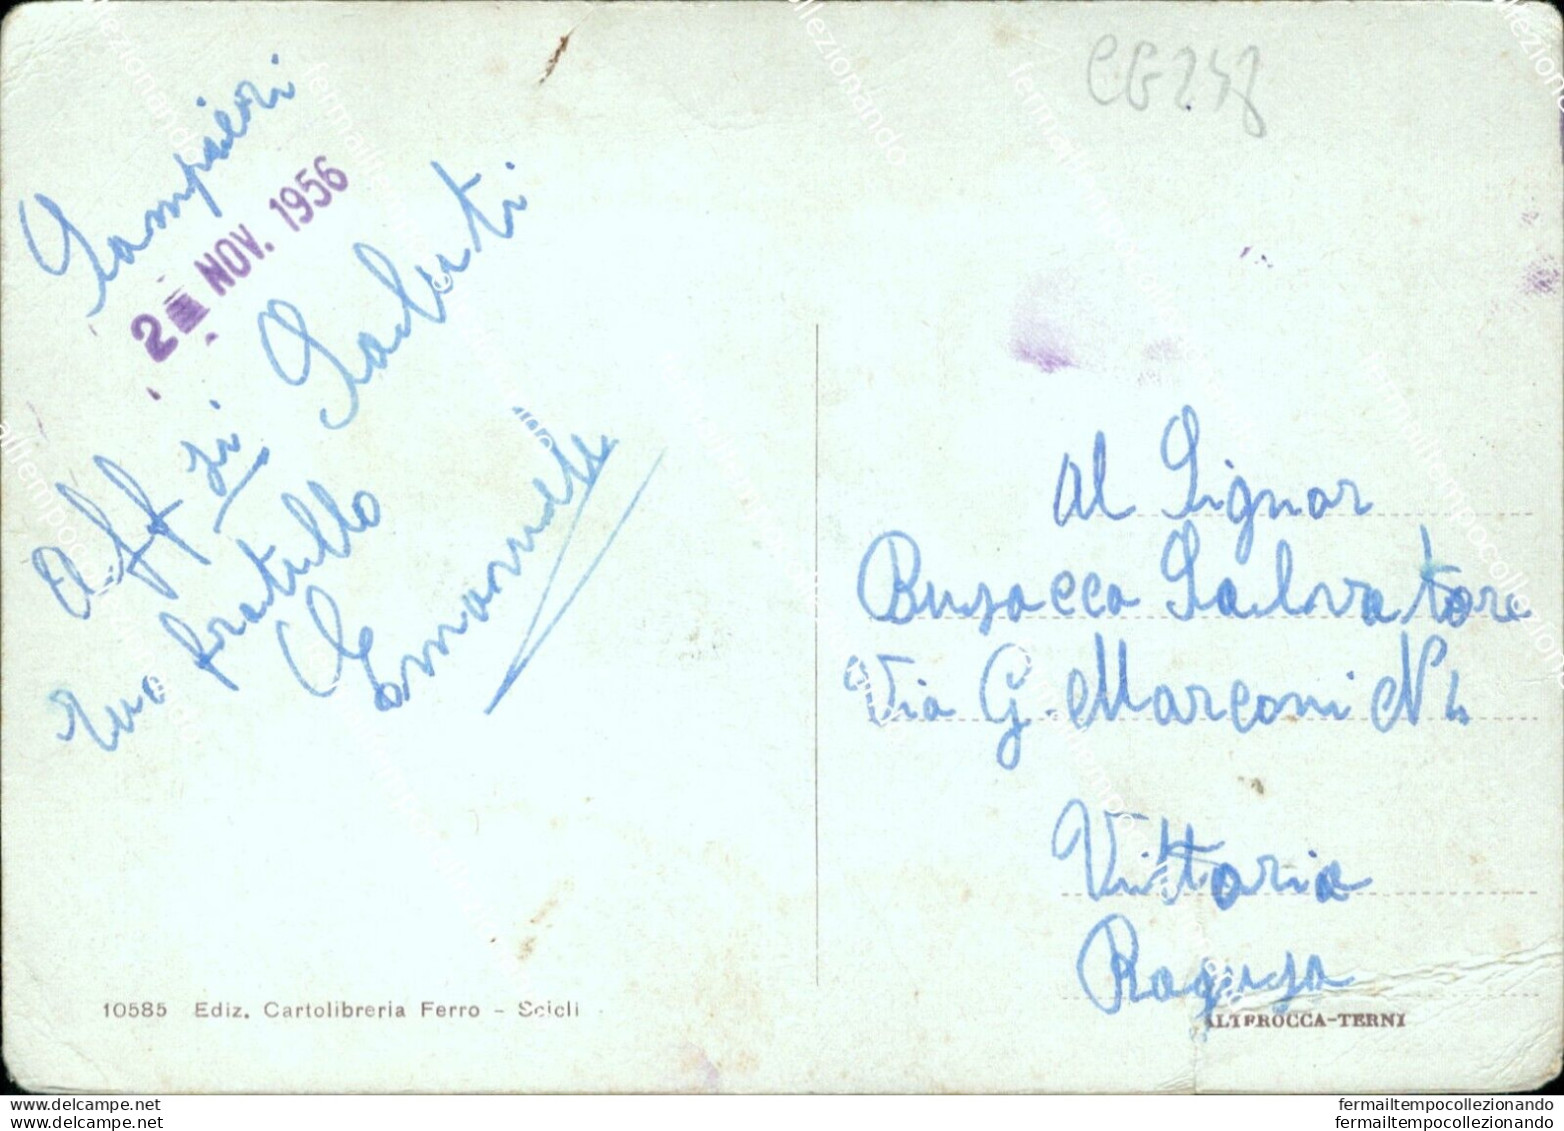 CG248
Sampieri
2 NOV. 1956
Aff.zi Saluti
tuo fratello
Emanuele
Al Signor
Busacca Salvatore
Via G. Marconi N 4
Vittoria
Ragusa
10585 Ediz. Cartolibreria Ferro - Scicli
ALTEROCCA-TERNI
www.delcampe.net
fermailtempocollezionando
fermailtempocollezionando
fermailtempocollezionando